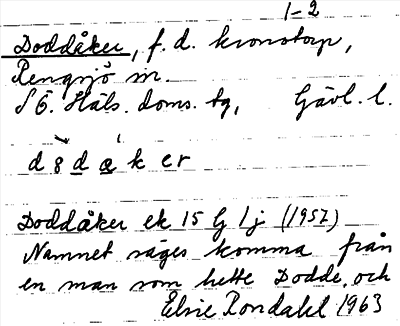 1-2
Doddåker, f. d. kronotorp,
Rengsjö sn.
S Ö. Häls. doms. tg, Gävl. l.
d 8 d æ k er
Doddåker ek 15 G 1 j (1957)
Namnet säges komma från
en man som hette Dodde, och
Elsie Rondahl 1963